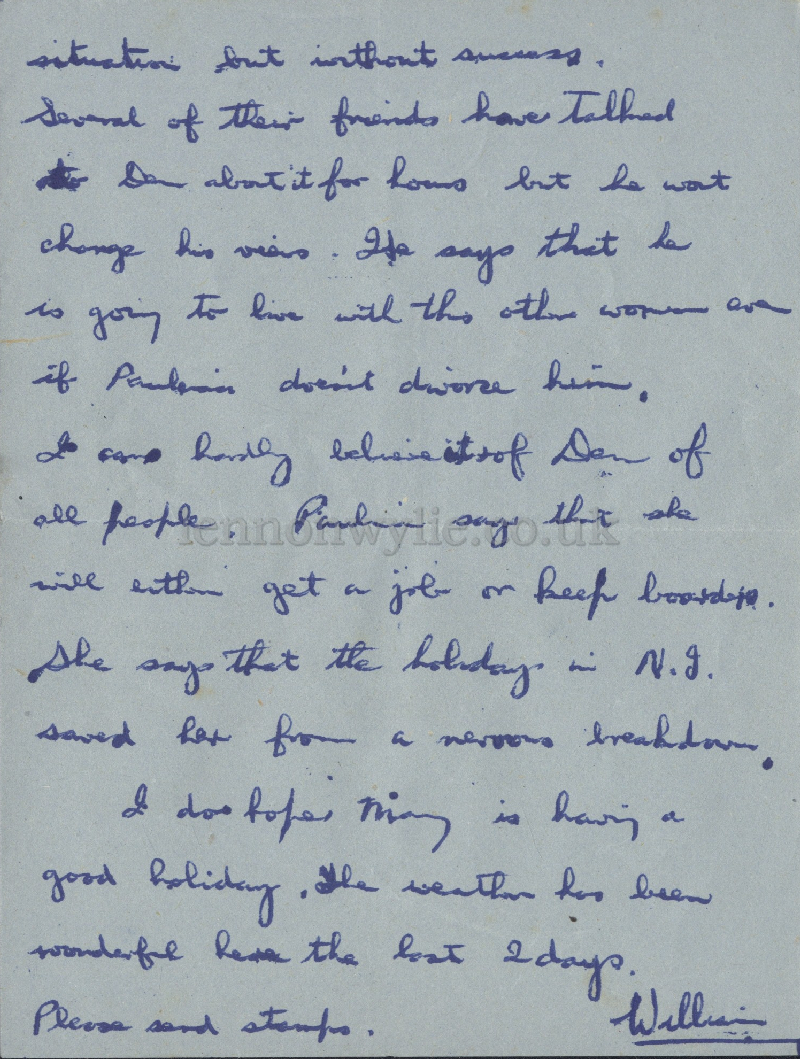 situation but without success.
Several of their friends have talked
to Den about it for hours but he wont
change his views. He says that he
is going to live with this other woman even
if Pauline doesn't divorce him.
I can hardly believe it of Den of
all people. Pauline says that she
lennonwylie.co.uk
will either get a job or keep boarders.
She says that the holidays in N.I.
saved her from a nervous breakdown.
I do hope Mary is having a
good holiday. The weather has been
wonderful here the last 2 days.
Please send stamps.
William